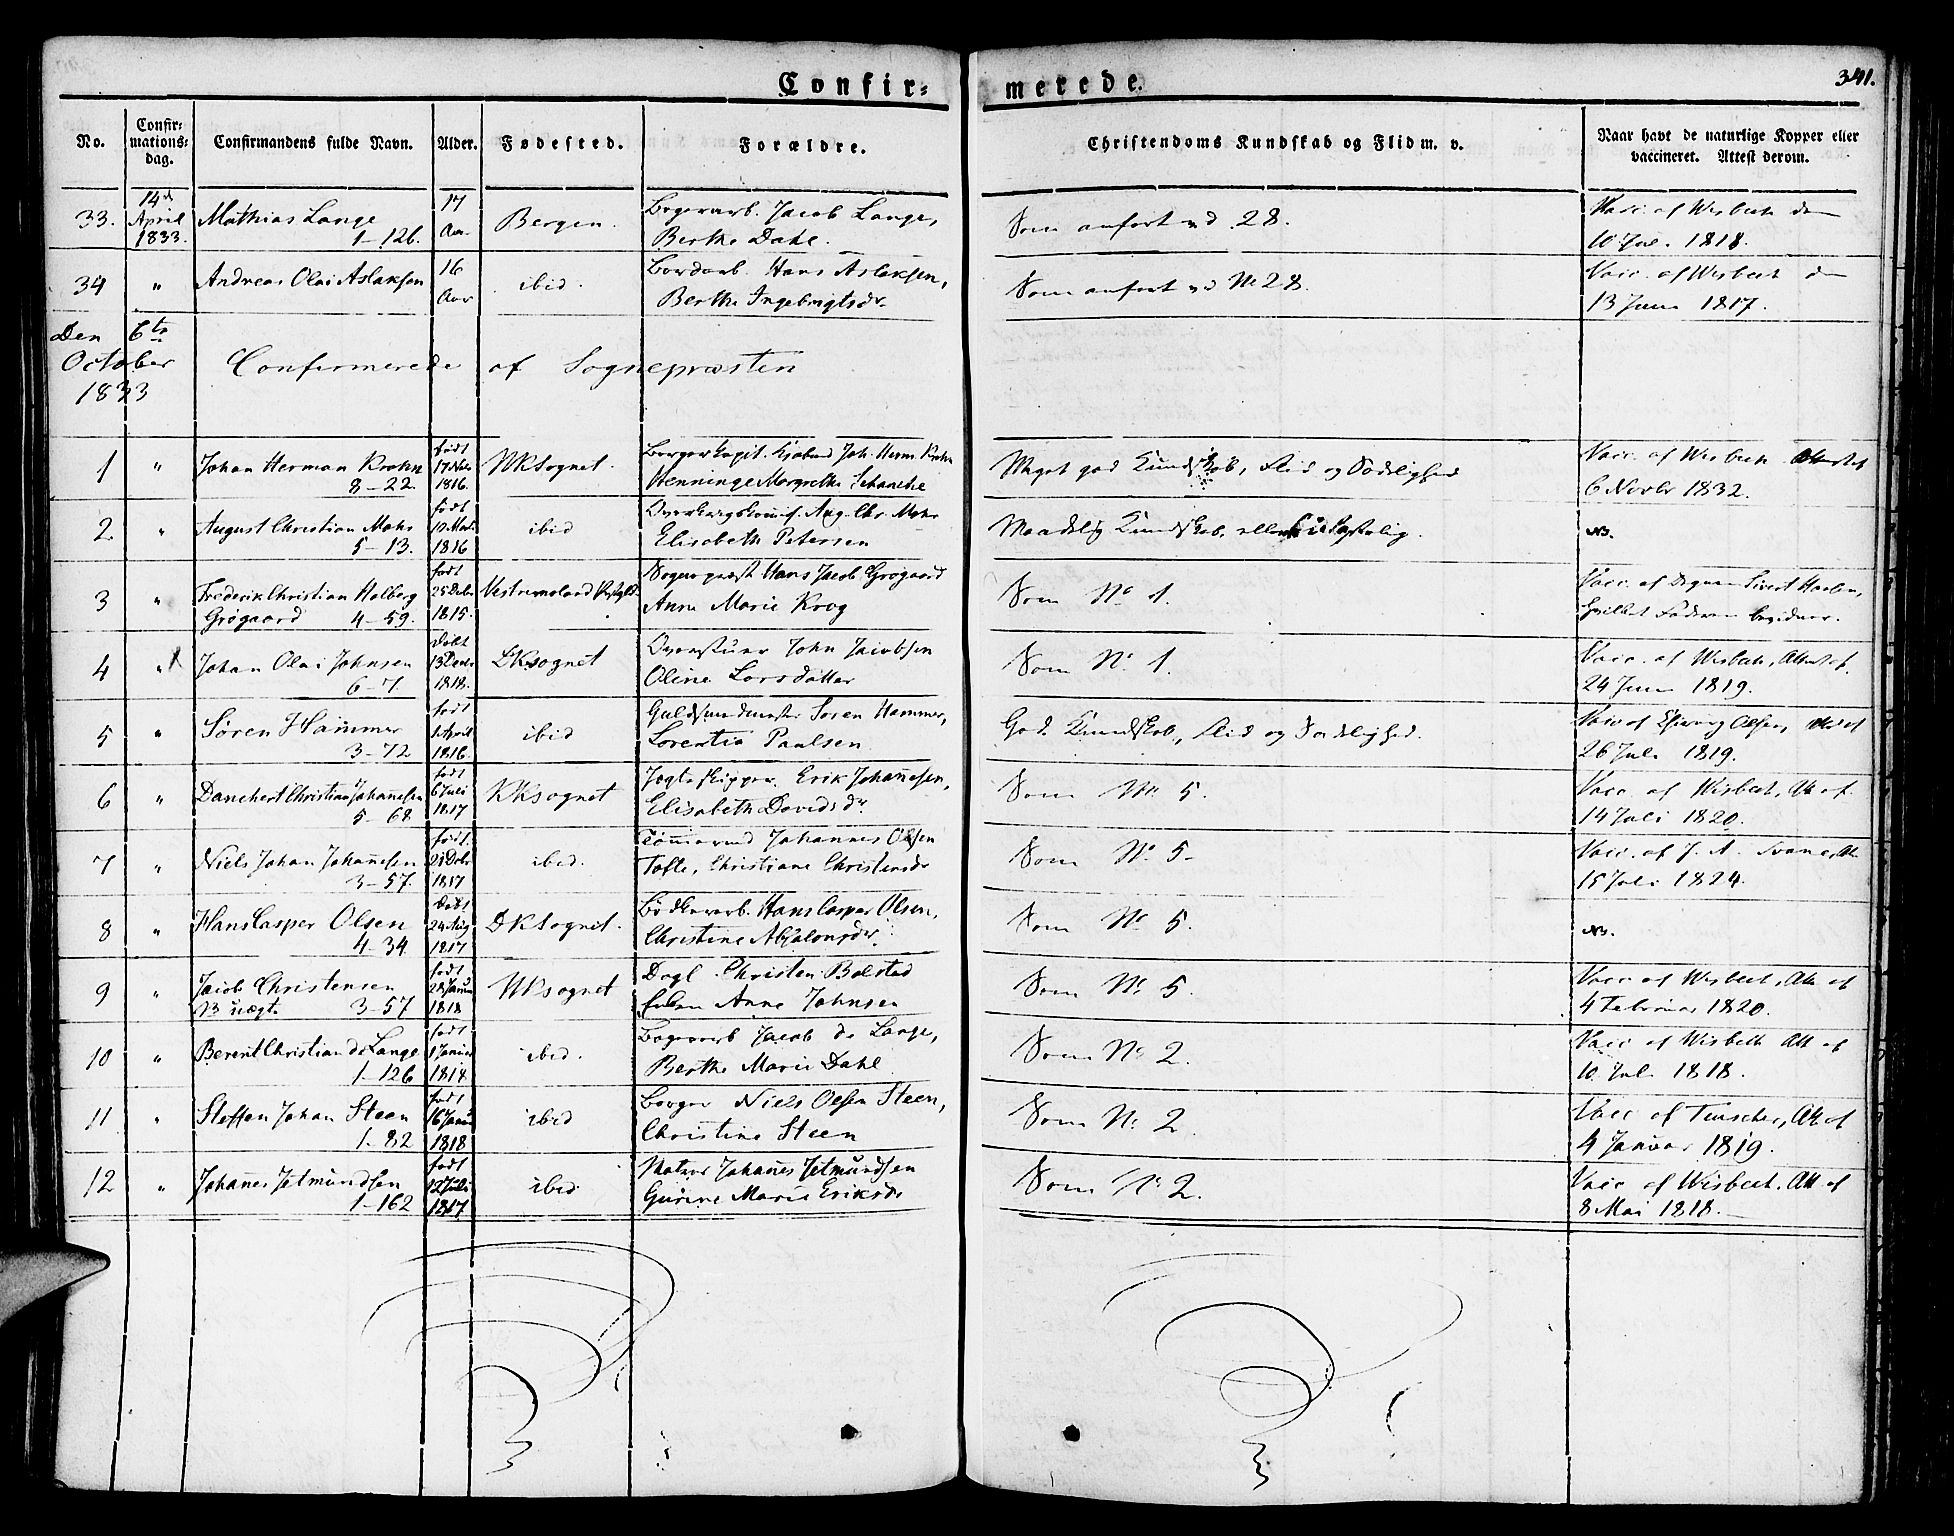 Confir=
merede.
341.
No.
Confir=
mations=
dag.
Confirmandens fulde Navn.
Alder.
Fødested.
Forældre.
Christendoms Kundskab og Flid m. v.
Naar havt de naturlige Kopper eller
vaccineret. Attest derom.
33.
14de
April
1833.
Mathias Lange
1-126.
17
Aar
Bergen.
Jacob Lange,
Berthe Dahl.
Som anført ved 28.
Vacc. af Wisbech den
10 Jul. 1818.
34
"
Andreas Olai Aslaksen
16
Aar
ibid.
Hans Aslaksen,
Berthe Ingebrigtsdr
Som anført ved No 28.
Vacc. af Wisbech d
13 Juni 1817.
Den 6te
October
1833
Confirmerede af Sognepræsten
1
"
Johan Herman Krohn
8-22.
født
17 Nov
1816.
NKSognet.
Joh. Herm. Krohn
Henninge Margrethe Schanche
Meget god Kundskab, Flid og Sædelighed
Vacc. af Wisbech Attestat
6 Novbr 1832.
2
"
August Christian Mohr
5-13.
født
1816
ibid
Aug. Chr. Mohr
Elisabeth Petersen
Maadelig Kundskab,
3
"
Frederik Christian Holberg
Grøgaard 4-59.
født
25 Debr
1815.
Sognepræst Hans Jacob Grøgaard
Anne Marie Krog
Som No 1.
Vacc. af Degnen Sivert
hvilket Faderen bevidner.
4
"
Johan Olai Johnsen
6-7.
født
13 Decbr
1818.
DKsognet
John Jacobsen
Oline Larsdatter
Som No 1.
Vacc. af Wisbech, Att. af
24 Juni 1819.
5
"
Søren Hammer
3-72
født
1 April
1816.
ibid
Søren Hammer,
Lorentia Paulsen
God Kundskab, Flid og Sædelighed.
Vacc af Olsen, Att af
26 Juli 1819.
6
"
Danchert Christian Johannesen
5-68.
født
6 Juli
1817
KKsognet
Jagteskipper Erik Johannesen,
Elisabeth Davidsdr
Som No 5.
Vacc. af Wisbech, Att af
14 Juli 1820.
7
"
Niels Johan Johannesen
3-57.
født
1817
ibid.
Tømmermd Johannes Olsen
Tofte, Christiane Christensdr
Som No 5-
Vacc. af J. A.
15 Juli 1824.
8
"
Hans Casper Olsen
4-34.
født
24 Aug
1817
DKSognet.
Bødkerarb. Hans Casper Olsen,
Christine Absalonsdr.
Som No 5.
9
"
Jacob Christensen
NB uægte 3-57
født
28 Januar
1818
NKsognet
Dagl. Christen Bolstad
Anne Johnsen
Som No 5.
Vacc af Wisbech, Att af
4 Februar 1820.
10
"
Berent Christian de Lange
1-126
født
ibid.
Jacob de Lange,
Berthe Marie Dahl
Som No 2.
Vacc. af Wisbech Att af
10 Juli 1818.
11
"
Steffen Johan Steen
1-82
født
16 Januar
1818
ibid
Borger Niels Olsen Steen,
Christine Steen
Som No 2
Vacc af Att af
4 Januar 1819.
12
"
Johannes Jetmundsen
1-162
født
12 Juli
1817
ibid
Matros Johannes Jetmundsen
Gurine Marie Eriksdr
Som No 2.
Vacc af Wisbech. Att af
8 Mai 1818.